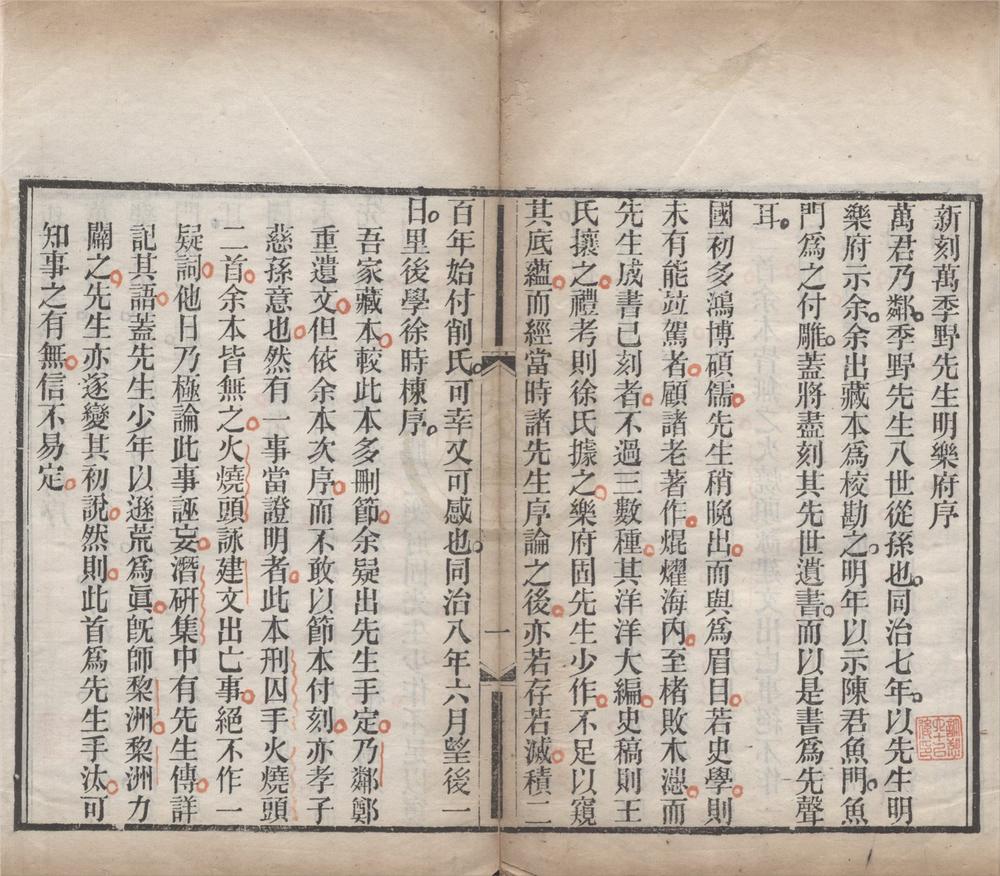 新刻萬季野先生明樂府序
萬君乃鄰季野先生八世從孫也同治七年以先生明
樂府示余余出藏本為校勘之明年以示陳君魚門魚
門為之付雕蓋將盡刻其先世遺書而以是書為先聲
耳
國初多鴻博碩儒先生稍晚出而與為眉目若史學則
未有能竝駕者顧諸老著作焜燿海內至楮敗木漶而
先生成書已刻者不過三數種其洋洋大編史稿則王
氏攘之禮考則徐氏據之樂府固先生少作不足以窺
其底蘊而經當時諸先生序論之後亦若存若滅積二
百年始付削氏可幸又可感也同治八年六月望後一
日里後學徐時棟序
吾家藏本較此本多刪節余疑出先生手定乃鄰鄭
重遺文但依余本次序而不敢以節本付刻亦孝子
慈孫意也然有一事當證明者此本刑囚手火燒頭
二首余本皆無之火燒頭詠建文出亡事絕不作一
疑詞他日乃極論此事誣妄潛研集中有先生傳詳
記其語蓋先生少年以遜荒為眞旣師黎洲黎洲力
闢之先生亦遂變其初說然則此首為先生手汰可
知事之有無信不易定
一